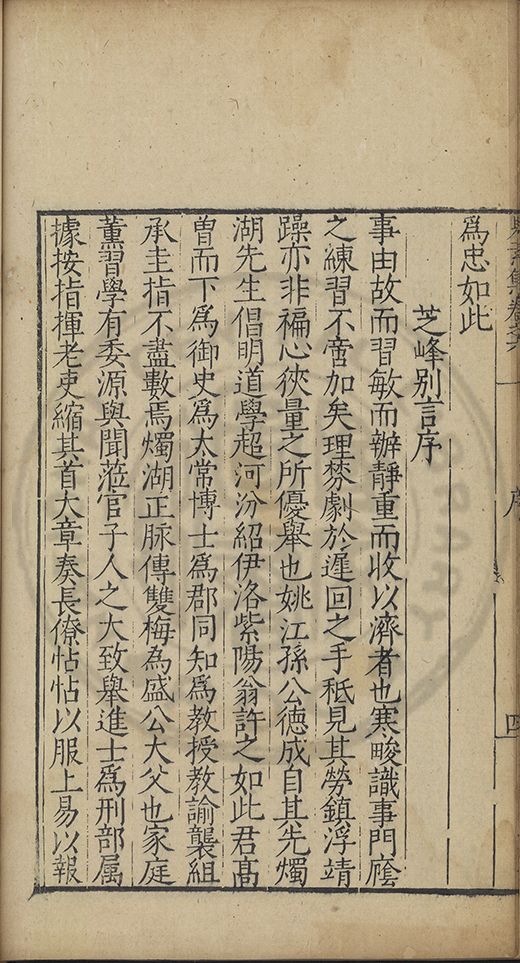 爲忠如此
芝峰别言序
事由故而習敏而辦靜重而收以濟者也寒畯識事門廕
之練習不啻加矣理棼劇於遲回之手秪見其勞鎮浮靖
躁亦非褊心狹量之所優舉也姚江孫公德成自其先燭
湖先生倡明道學超河汾紹伊洛紫陽翁許之如此君髙
曽而下爲御史爲太常博士爲郡同知爲教授教諭襲組
承圭指不盡數焉燭湖正脉傳雙梅為盛公大父也家庭
薰習學有委源與聞蒞官子人之大致舉進士爲刑部属
據按指揮老吏縮其首大章奏長僚帖帖以服上易以報